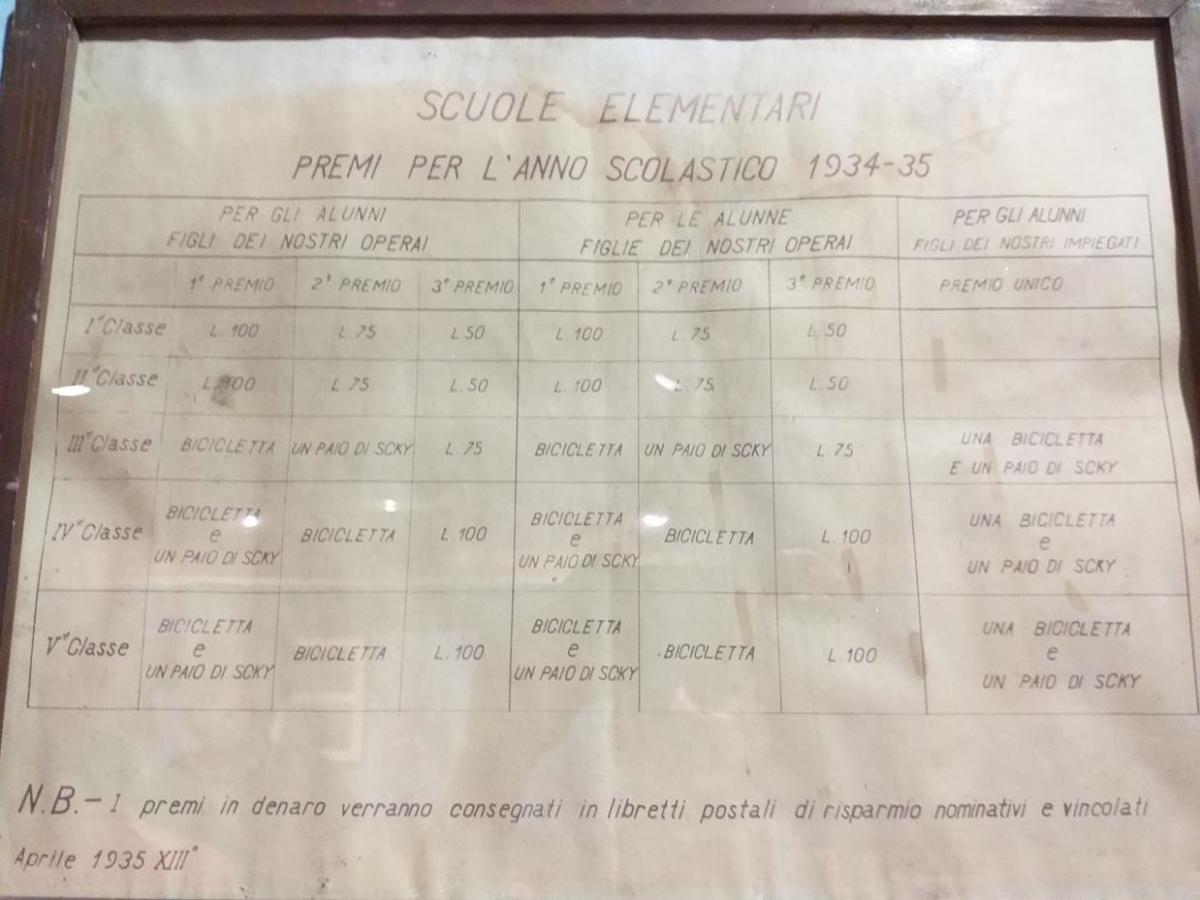 SCUOLE ELEMENTARI
PREMI PER L'ANNO SCOLASTICO 1934-35
PER GLI ALUNNI FIGLI DEI NOSTRI OPERAI PER LE ALUNNE FIGLIE DEI NOSTRI OPERAI PER GLI ALUNNI FIGLI DEI NOSTRI IMPIEGATI
1° PREMIO 2° PREMIO 3° PREMIO 1° PREMIO 2° PREMIO 3° PREMIO PREMIO UNICO
Iª Classe L. 100 L. 75 L. 50 L. 100 L. 75 L. 50
IIª Classe L. 100 L. 75 L. 50 L. 100 L. 75 L. 50
IIIª Classe BICICLETTA UN PAIO DI SCKY L. 75 BICICLETTA UN PAIO DI SCKY L. 75 UNA BICICLETTA E UN PAIO DI SCKY
IVª Classe BICICLETTA e UN PAIO DI SCKY BICICLETTA L. 100 BICICLETTA e UN PAIO DI SCKY BICICLETTA L. 100 UNA BICICLETTA e UN PAIO DI SCKY
Vª Classe BICICLETTA e UN PAIO DI SCKY BICICLETTA L. 100 BICICLETTA e UN PAIO DI SCKY BICICLETTA L. 100 UNA BICICLETTA e UN PAIO DI SCKY
N.B. - I premi in denaro verranno consegnati in libretti postali di risparmio nominativi e vincolati
Aprile 1935 XIII°